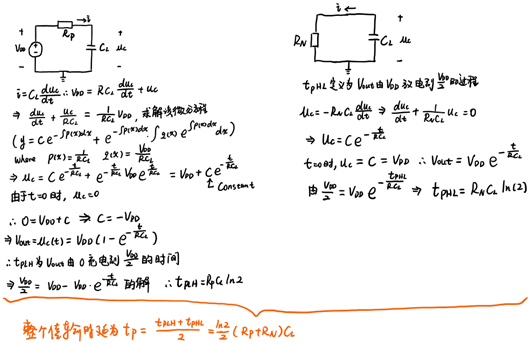 →i
+ R_P +
V_DD C_L u_c
- -
i = C_L du_c/dt ∴ V_DD = RC_L du_c/dt + u_c
⇒ du_c/dt + u_c/RC_L = 1/RC_L V_DD, 求解该微分方程
(y = Ce^{-∫P(x)dx} + e^{-∫P(x)dx} · ∫Q(x) e^{∫P(x)dx} dx)
where P(x) = 1/RC_L Q(x) = V_DD/RC_L
⇒ u_c = Ce^{-t/RC_L} + e^{-t/RC_L} V_DD e^{t/RC_L} = V_DD + Ce^{-t/RC_L}
Constant
由于t=0时, u_c=0
∴ 0 = V_DD + C ⇒ C = -V_DD
⇒ V_out = u_c(t) = V_DD (1 - e^{-t/RC_L})
∴ t_PLH 为 V_out 由 0 充电到 V_DD/2 的时间
⇒ V_DD/2 = V_DD - V_DD · e^{-t/RC_L} 的解 ∴ t_PLH = R_P C_L ln2
i ←
+
R_N C_L u_c
-
t_PHL 定义为 V_out 由 V_DD 放电到 V_DD/2 的过程
u_c = -R_N C_L du_c/dt ⇒ du_c/dt + 1/R_N C_L u_c = 0
⇒ u_c = Ce^{-t/RC_L}
t=0时, u_c = C = V_DD ∴ V_out = V_DD e^{-t/RC_L}
由 V_DD/2 = V_DD e^{-t_PHL/RC_L} ⇒ t_PHL = R_N C_L ln(2)
整个传输延迟为 t_P = (t_PLH + t_PHL)/2 = ln2/2 (R_P + R_N) C_L